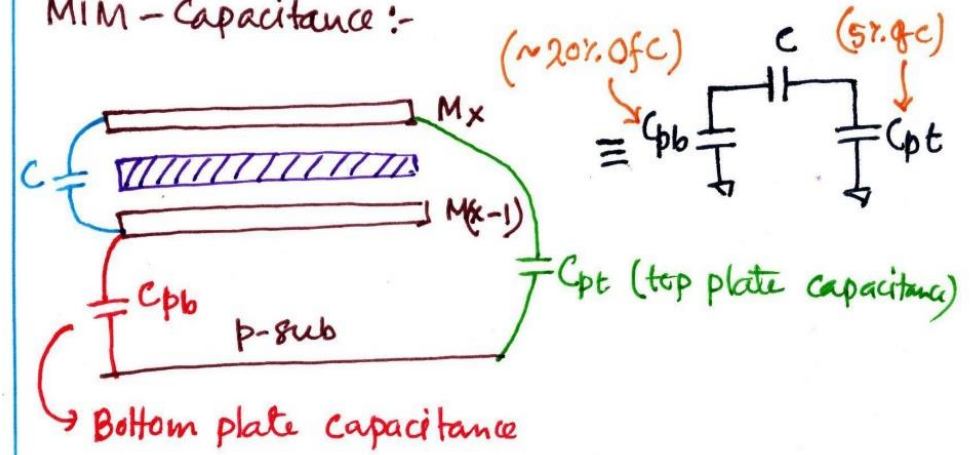 MIM - Capacitance :-
(~20% Of C)
C
(5% of C)
Mx
≡
Cpb
Cpt
C
M(x-1)
Cpb
Cpt (top plate capacitance)
p-sub
Bottom plate capacitance